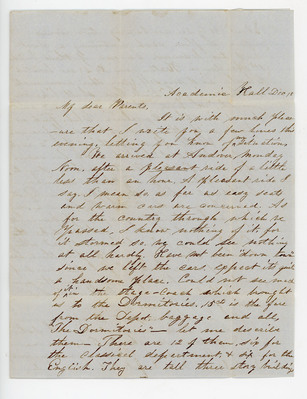 Academia Hall Dec. 12
My dear Parents,
It is with much pleas-
ure that I write you a few lines this
evening, letting you know of
We arrived at Andover, Monday
Noon, after a pleasant ride of a little
less than an hour. A pleasant ride I
say, I mean so as far as easy seats
and warm cars are concerned. As
for the country through which we
passed, I know nothing of it for
it stormed so, we could see nothing
at all hardly. Have not been down town
since we left the cars, expect it's quite
a handsome place. Could not see much
of it in the stage-coach which brought
us to the Dormitories, 13cts is the fare
from the Depot, baggage and all,
The Dormitories - let me describe
them - There are 12 of them, six for
the classical department & six for the
English. They are tall three story building